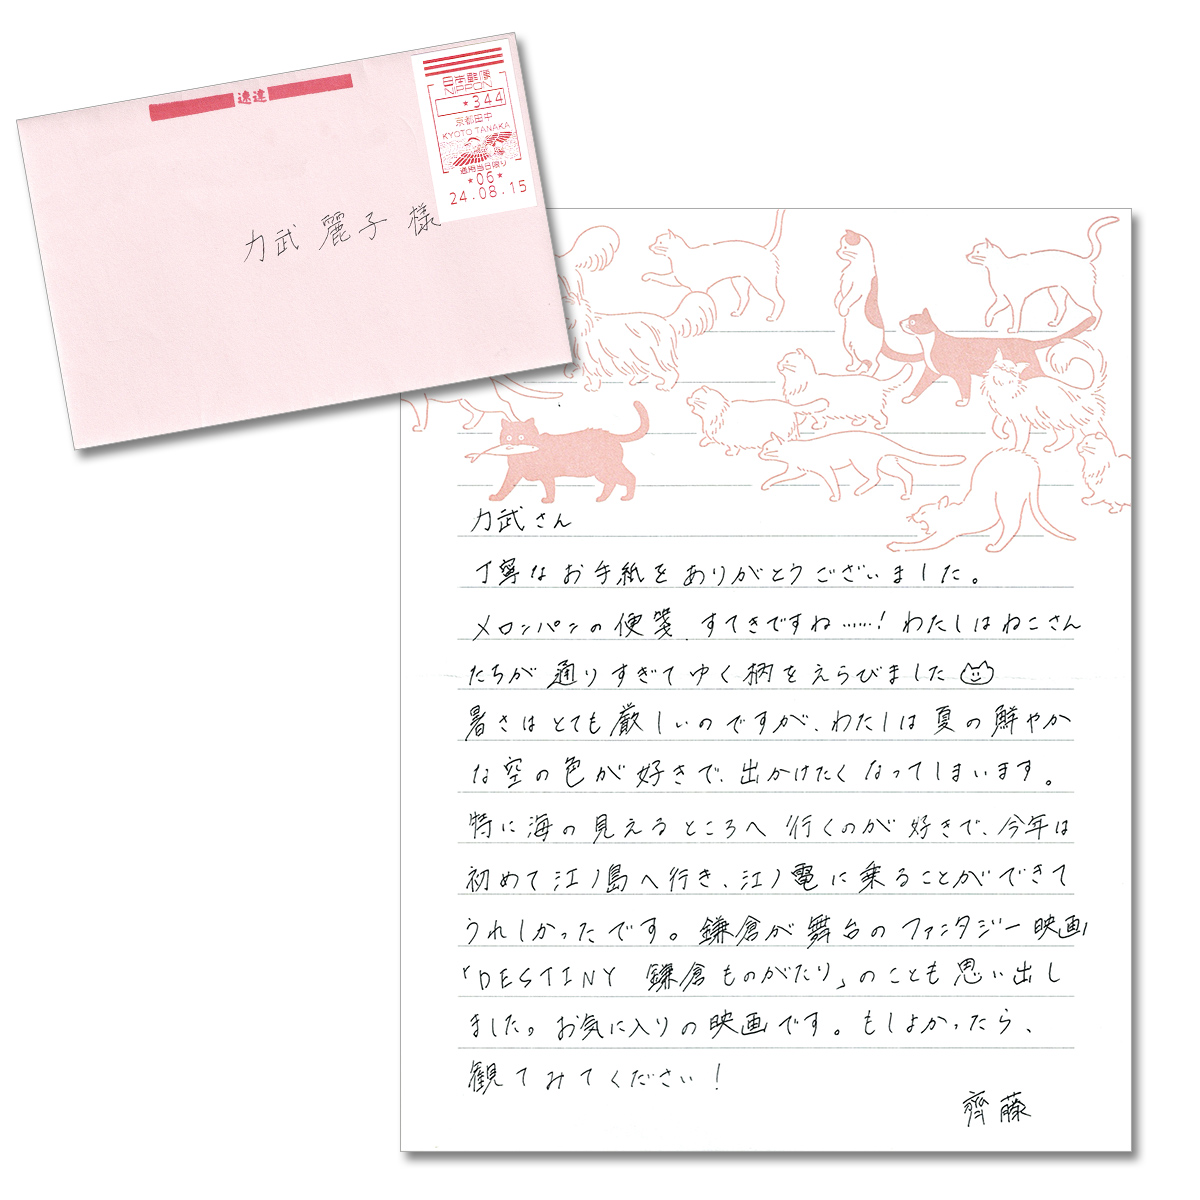 速達
日本郵便
NIPPON
*344
京都田中
KYOTO TANAKA
適用当日限り
*06*
24.08.15
力武 麗子 様
力武さん
丁寧なお手紙をありがとうございました。
メロンパンの便箋、すてきですね……! わたしはねこさん
たちが通りすぎてゆく柄をえらびました
暑さはとても厳しいのですが、わたしは夏の鮮やか
な空の色が好きで、出かけたくなってしまいます。
特に海の見えるところへ行くのが好きで、今年は
初めて江ノ島へ行き、江ノ電に乗ることができて
うれしかったです。鎌倉が舞台のファンタジー映画
「DESTINY 鎌倉ものがたり」のことも思い出し
ました。お気に入りの映画です。もしよかったら、
観てみてください!
齊藤